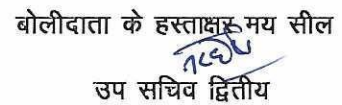 बोलीदाता के हस्ताक्षर मय सील
उप सचिव द्वितीय